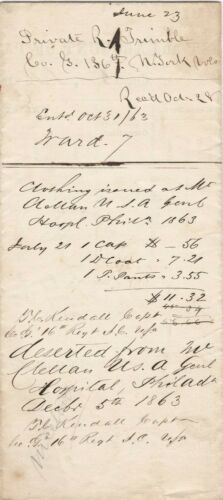 June 23
Private R. Trimble
Co. G. 186th N. York Vols
Rec'd Oct. 28
Ent'd Oct 31/63
Ward. 7
Clothing issued at Mc
Clellan U.S.A Genl
Hospl. Phila. 1863
July 21 1 Cap $ - 56
1 D Coat = 7.21
1 P. Pants = 3.55
$11.32
Kendall Capt
16th Regt
deserted from Mc
Clellan U.S.A Genl
Hospital, Philada
Decbr 5th 1863
Kendall Capt
16th Regt